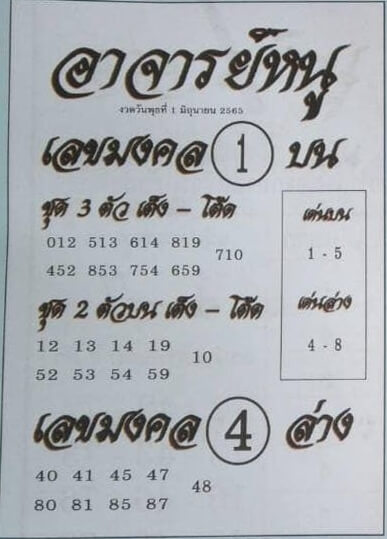 อาจารย์หนู
งวดวันพุธที่ 1 มิถุนายน 2565
เลขมงคล 1 บน
ชุด 3 ตัว เต็ง - โต๊ด
012 513 614 819
710
452 853 754 659
เด่นบน
1 - 5
เด่นล่าง
4 - 8
ชุด 2 ตัวบน เต็ง - โต๊ด
12 13 14 19
10
52 53 54 59
เลขมงคล 4 ล่าง
40 41 45 47
48
80 81 85 87